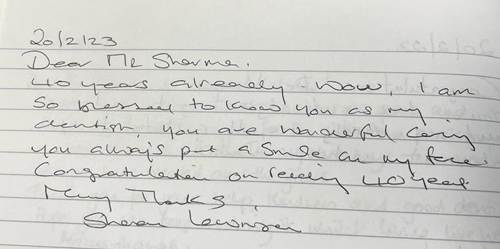 20/2/23
Dear Mr Sharma.
40 years already. Wow, I am
so blessed to know you as my
dentist, you are wonderful caring
you always put a smile on my face.
Congratulation on reaching 40 years.
Many Thanks,
Sharon